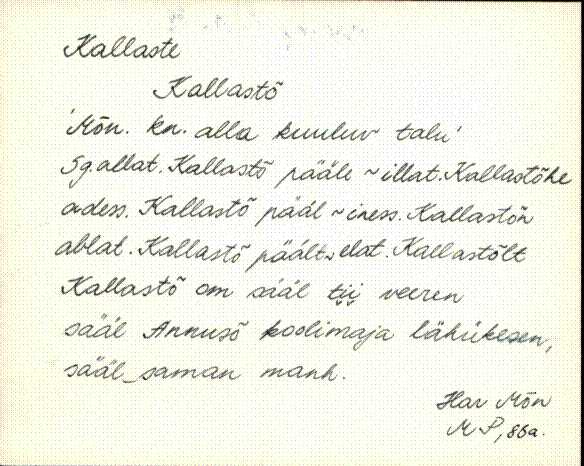 Kallaste
Kallastõ
'Mõn. kn. alla kuuluv talu'
Sg. allat. Kallastõ pääle ~ illat. Kallastõhe
adess. Kallastõ pääl ~ iness. Kallastõn
ablat. Kallastõ päält ~ elat. Kallastõlt
Kallastõ om sääl tii veeren
sääl Annusõ koolimaja lähükesen,
sääl_saman manh.
Har Mõn
M P, 86a.